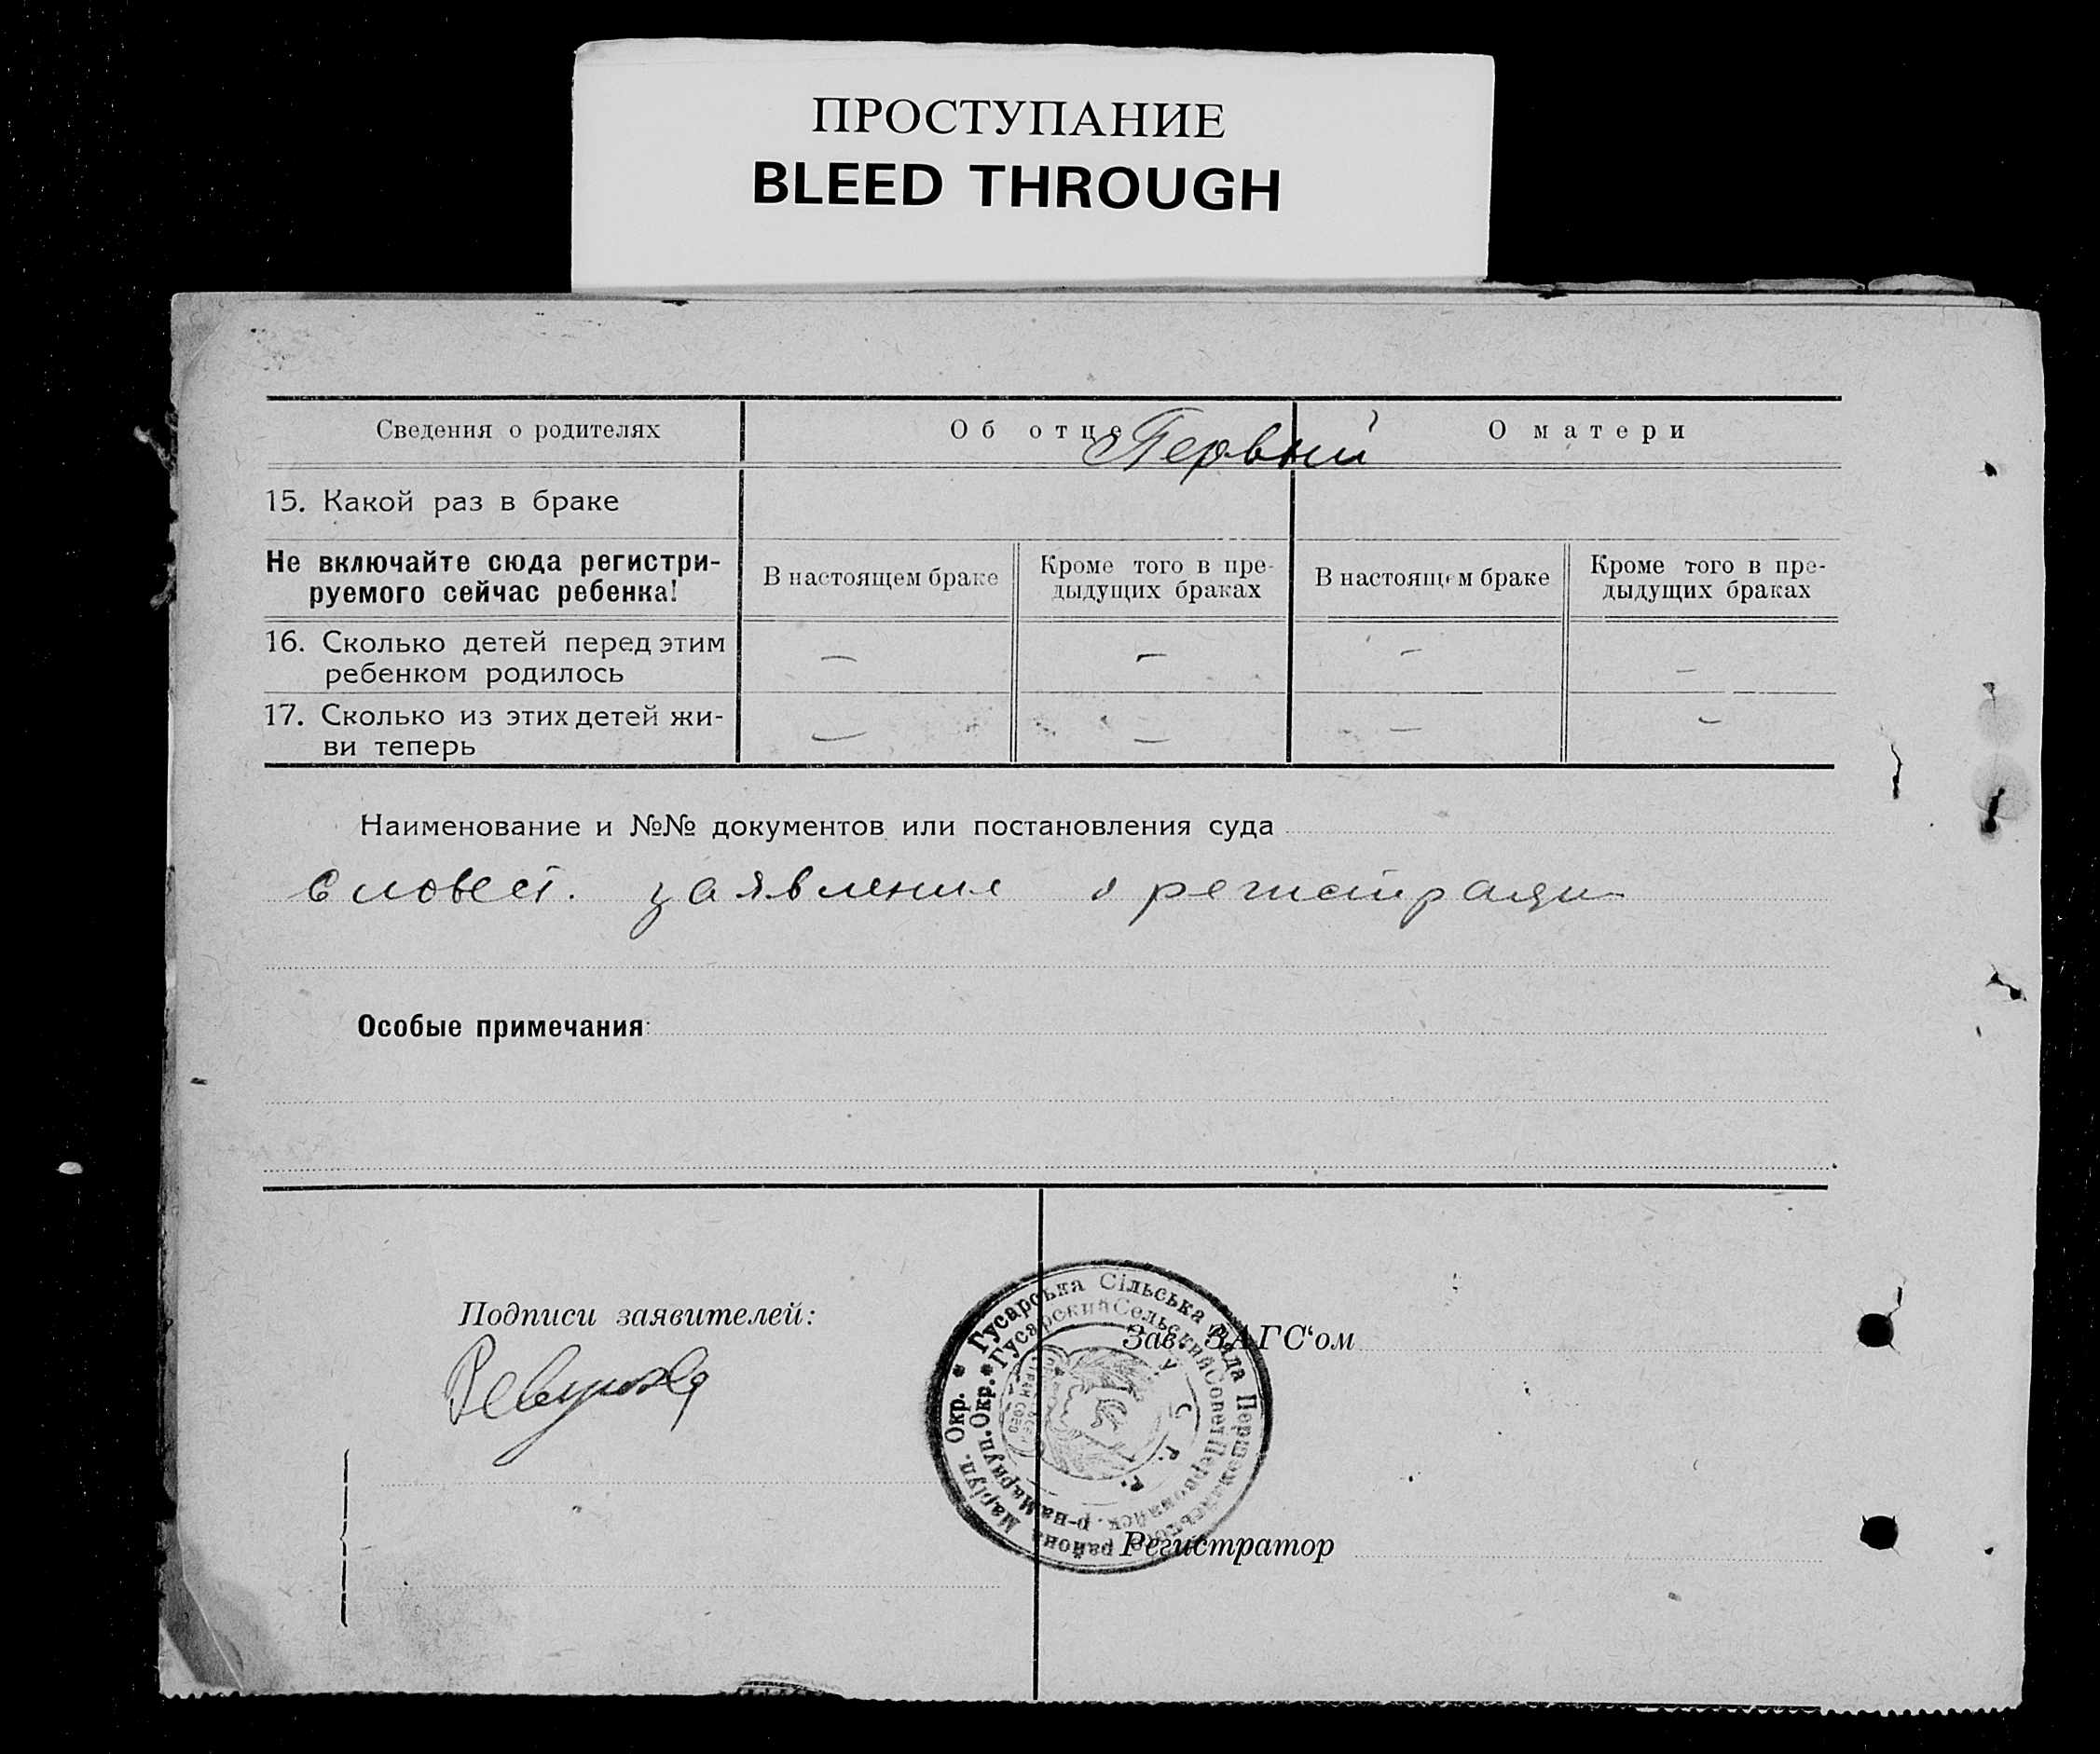 ПРОСТУПАНИЕ
BLEED THROUGH
Сведения о родителях
Об отце
О матери
Первый
15. Какой раз в браке
Не включайте сюда регистри-
руемого сейчас ребенка!
В настоящем браке
Кроме того в пре-
дыдущих браках
В настоящем браке
Кроме того в пре-
дыдущих браках
16. Сколько детей перед этим
ребенком родилось
— — — —
17. Сколько из этих детей жи-
ви теперь
— — — —
Наименование и №№ документов или постановления суда
словест. заявление о регистрации
Особые примечания:
Подписи заявителей:
Зав. ЗАГС‘ом
Регистратор
Гусарська Сільська Рада Першомайського района Маріуп. Окр.
Гусарский Сельский Совет Первомайск. р-на Мариуп. Окр.